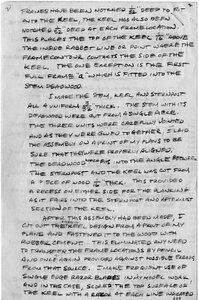 FRAMES HAVE BEEN NOTCHED 3/32 DEEP TO FIT
INTO THE KEEL, THE KEEL HAS ALSO BEEN
NOTCHED DEEP AT EACH FRAME LOCATION.
THIS PLACES THE TOP OF THE KEEL ABOVE
THE INSIDE RABBET LINE OR POINT WHERE THE
FRAME CONTOUR CONTACTS THE SIDE OF THE
KEEL. THE ONE EXCEPTION IS THE FIRST
FULL FRAME "A" WHICH IS FITTED INTO THE
STEM DEADWOOD.
I MADE THE STEM, KEEL AND STERNPOST
ALL A UNIFORM THICK. THE STEM WITH ITS
DEADWOOD WERE CUT FROM A SINGLE PIECE.
THE THREE UNITS WERE CAREFULLY JOINTED
AND AS THEY WERE GLUED TOGETHER, I LAID
THE ASSEMBLY ON A PRINT OF MY PLANS TO BE
SURE THAT THEY WERE PROPERLY ALIGNED.
THE DEADWOOD INTO THE ANGLE BETWEEN
THE STERNPOST AND THE KEEL WAS CUT FROM
A PIECE OF WOOD THICK. THIS PROVIDED
A RECESS ON EITHER SIDE FOR THE PLANKING
AS IT FAIRS INTO THE STERNPOST AND AFTERMOST
SECTION OF THE KEEL.
AFTER THIS ASSEMBLY HAD BEEN MADE, I
CUT OUT THE KEEL DESIGN FROM A PRINT OF MY
PLANS AND FASTENED IT TO THE WOOD WITH
RUBBER CEMENT. THIS ELIMINATED ANY NEED
TO TRANSFER THE FRAME LOCATIONS BY PENCIL
AND ONCE AGAIN PROVIDED AGAINST POSSIBLE ERRORS
FROM THAT SOURCE. I MAKE FREQUENT USE OF
SINGLE EDGE RAZOR BLADES IN MY MODEL WORK
AND IN THIS CASE, SCORED THE TOP SURFACE OF
THE KEEL WITH A RAZOR AT EACH LINE WHICH